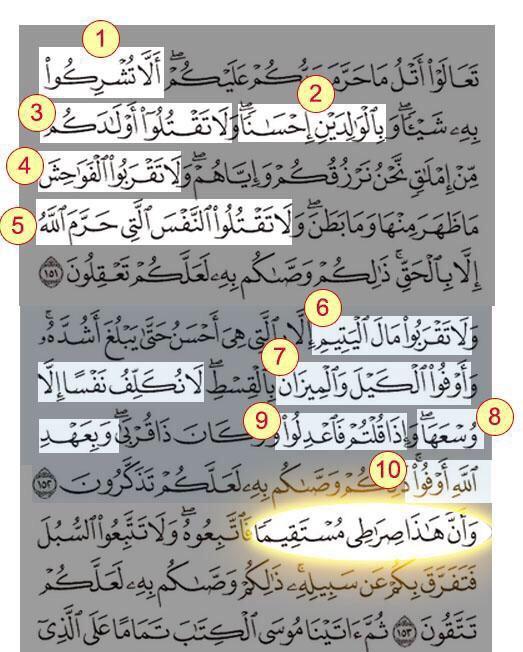 تَعَالَوْا۟ أَتْلُ مَا حَرَّمَ رَبُّكُمْ عَلَيْكُمْ ۖ أَلَّا تُشْرِكُوا۟ 1
بِهِۦ شَيْـًٔا ۖ وَبِٱلْوَٰلِدَيْنِ إِحْسَـٰنًا ۖ وَلَا تَقْتُلُوٓا۟ أَوْلَـٰدَكُم 2 3
مِّنْ إِمْلَـٰقٍ ۖ نَّحْنُ نَرْزُقُكُمْ وَإِيَّاهُمْ ۖ وَلَا تَقْرَبُوا۟ ٱلْفَوَٰحِشَ 4
مَا ظَهَرَ مِنْهَا وَمَا بَطَنَ ۖ وَلَا تَقْتُلُوا۟ ٱلنَّفْسَ ٱلَّتِى حَرَّمَ ٱللَّهُ 5
إِلَّا بِٱلْحَقِّ ۚ ذَٰلِكُمْ وَصَّىٰكُم بِهِۦ لَعَلَّكُمْ تَعْقِلُونَ ١٥١
وَلَا تَقْرَبُوا۟ مَالَ ٱلْيَتِيمِ إِلَّا بِٱلَّتِى هِىَ أَحْسَنُ حَتَّىٰ يَبْلُغَ أَشُدَّهُۥ ۖ 6
وَأَوْفُوا۟ ٱلْكَيْلَ وَٱلْمِيزَانَ بِٱلْقِسْطِ ۖ لَا نُكَلِّفُ نَفْسًا إِلَّا 7
وُسْعَهَا ۖ وَإِذَا قُلْتُمْ فَٱعْدِلُوا۟ وَلَوْ كَانَ ذَا قُرْبَىٰ ۖ وَبِعَهْدِ 8 9
ٱللَّهِ أَوْفُوا۟ ۚ ذَٰلِكُمْ وَصَّىٰكُم بِهِۦ لَعَلَّكُمْ تَذَكَّرُونَ ١٥٢ 10
وَأَنَّ هَـٰذَا صِرَٰطِى مُسْتَقِيمًا فَٱتَّبِعُوهُ ۖ وَلَا تَتَّبِعُوا۟ ٱلسُّبُلَ
فَتَفَرَّقَ بِكُمْ عَن سَبِيلِهِۦ ۚ ذَٰلِكُمْ وَصَّىٰكُم بِهِۦ لَعَلَّكُمْ
تَتَّقُونَ ١٥٣ ثُمَّ ءَاتَيْنَا مُوسَى ٱلْكِتَـٰبَ تَمَامًا عَلَى ٱلَّذِىٓ